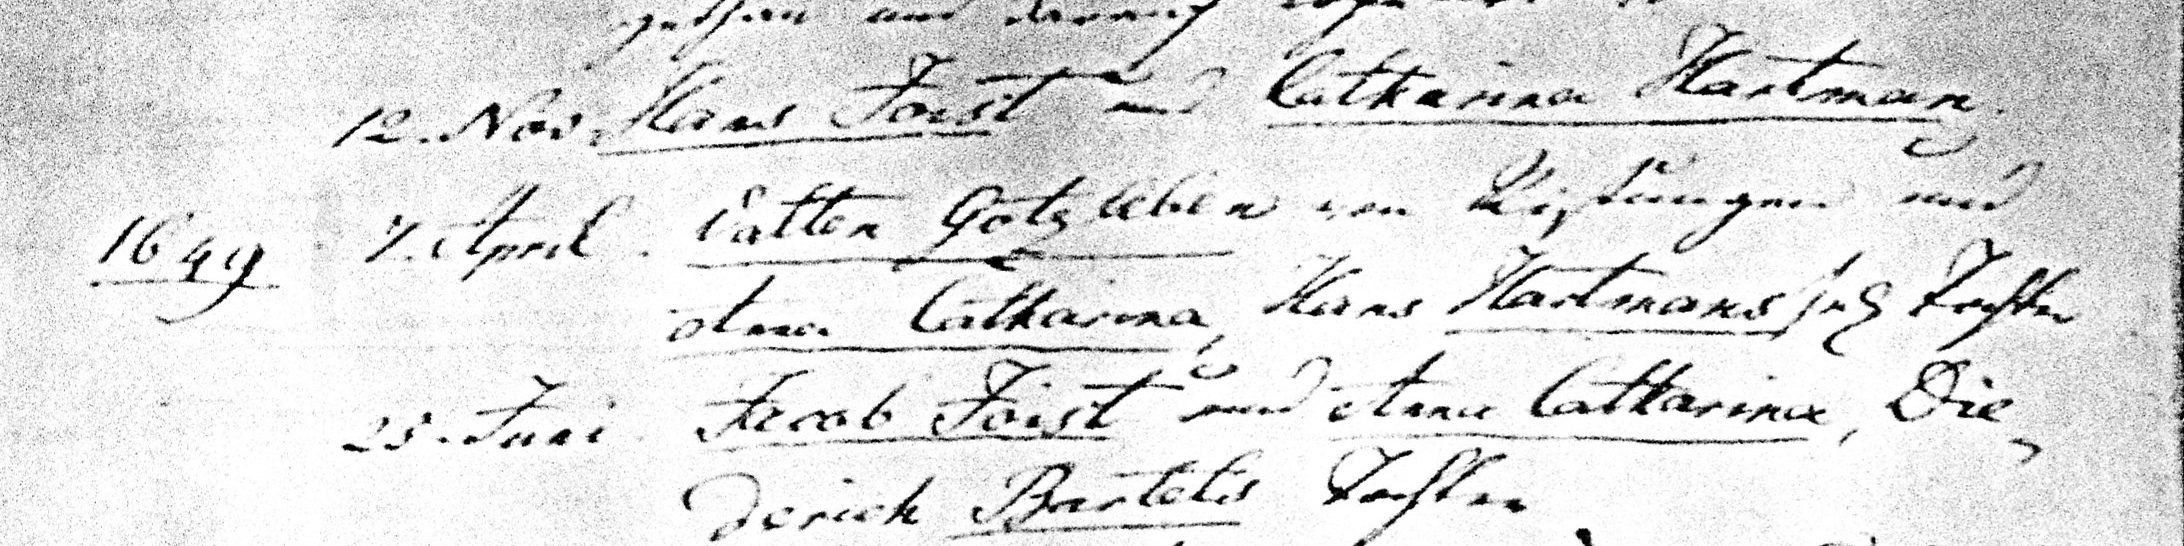 und darauf
12. Nov. Hans Foist und Catharina Hartman.
1649 7. April. Valten Gotzleben von und
Anna Catharina, Hans Hartmans Tochter
25. Juni Jacob Foist und Anna Catharina, Die
derich Bartels Tochter